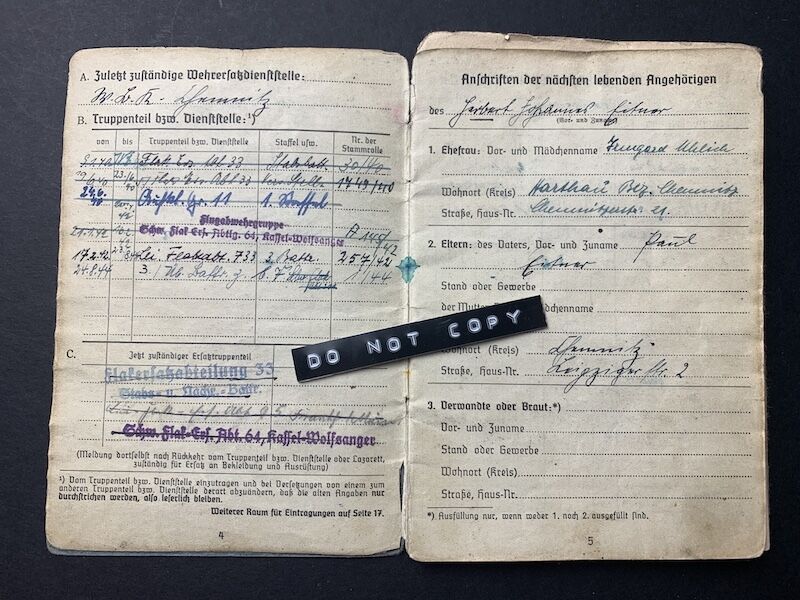 A. Zuletzt zuständige Wehrersatzdienststelle:
W.B.K. Chemnitz
B. Truppenteil bzw. Dienststelle:¹)
von bis Truppenteil bzw. Dienststelle Staffel usw. Nr. der Stammrolle
Abt 33
33 1749/40
24.6. 11 1.
Flugabwehrgruppe
Schw. Flak Ers. Abtlg. 64, Kassel-Wolfsanger
17.2.42 Lei. Flakabt. 733 3. Battr. 257/42
24.8.44 3. /44
C. Jetzt zuständiger Ersatztruppenteil
Flakersatzabteilung 33
Stabs- u. Nachr.-Battr.
Schw. Flak-Ers. Abt. 64, Kassel-Wolfsanger
(Meldung dortselbst nach Rückkehr vom Truppenteil bzw. Dienststelle oder Lazarett, zuständig für Ersatz an Bekleidung und Ausrüstung)
¹) Vom Truppenteil bzw. Dienststelle einzutragen und bei Versetzungen von einem zum
anderen Truppenteil bzw. Dienststelle derart abzuändern, daß die alten Angaben nur
durchstrichen werden, also leserlich bleiben.
Weiterer Raum für Eintragungen auf Seite 17.
4
Anschriften der nächsten lebenden Angehörigen
des Herbert Johannes Eitner
(Vor- und Zuname)
1. Ehefrau: Vor- und Mädchenname Irmgard Uhlich
Wohnort (Kreis) Harthau Bez. Chemnitz
Straße, Haus-Nr. Chemnitzerstr. 21.
2. Eltern: des Vaters, Vor- und Zuname Paul
Eitner
Stand oder Gewerbe
der Mutter, Mädchenname
DO NOT COPY
Wohnort (Kreis) Chemnitz
Straße, Haus-Nr. Leipziger Str. 2
3. Verwandte oder Braut:*)
Vor- und Zuname
Stand oder Gewerbe
Wohnort (Kreis)
Straße, Haus-Nr.
*) Ausfüllung nur, wenn weder 1. noch 2. ausgefüllt sind.
5